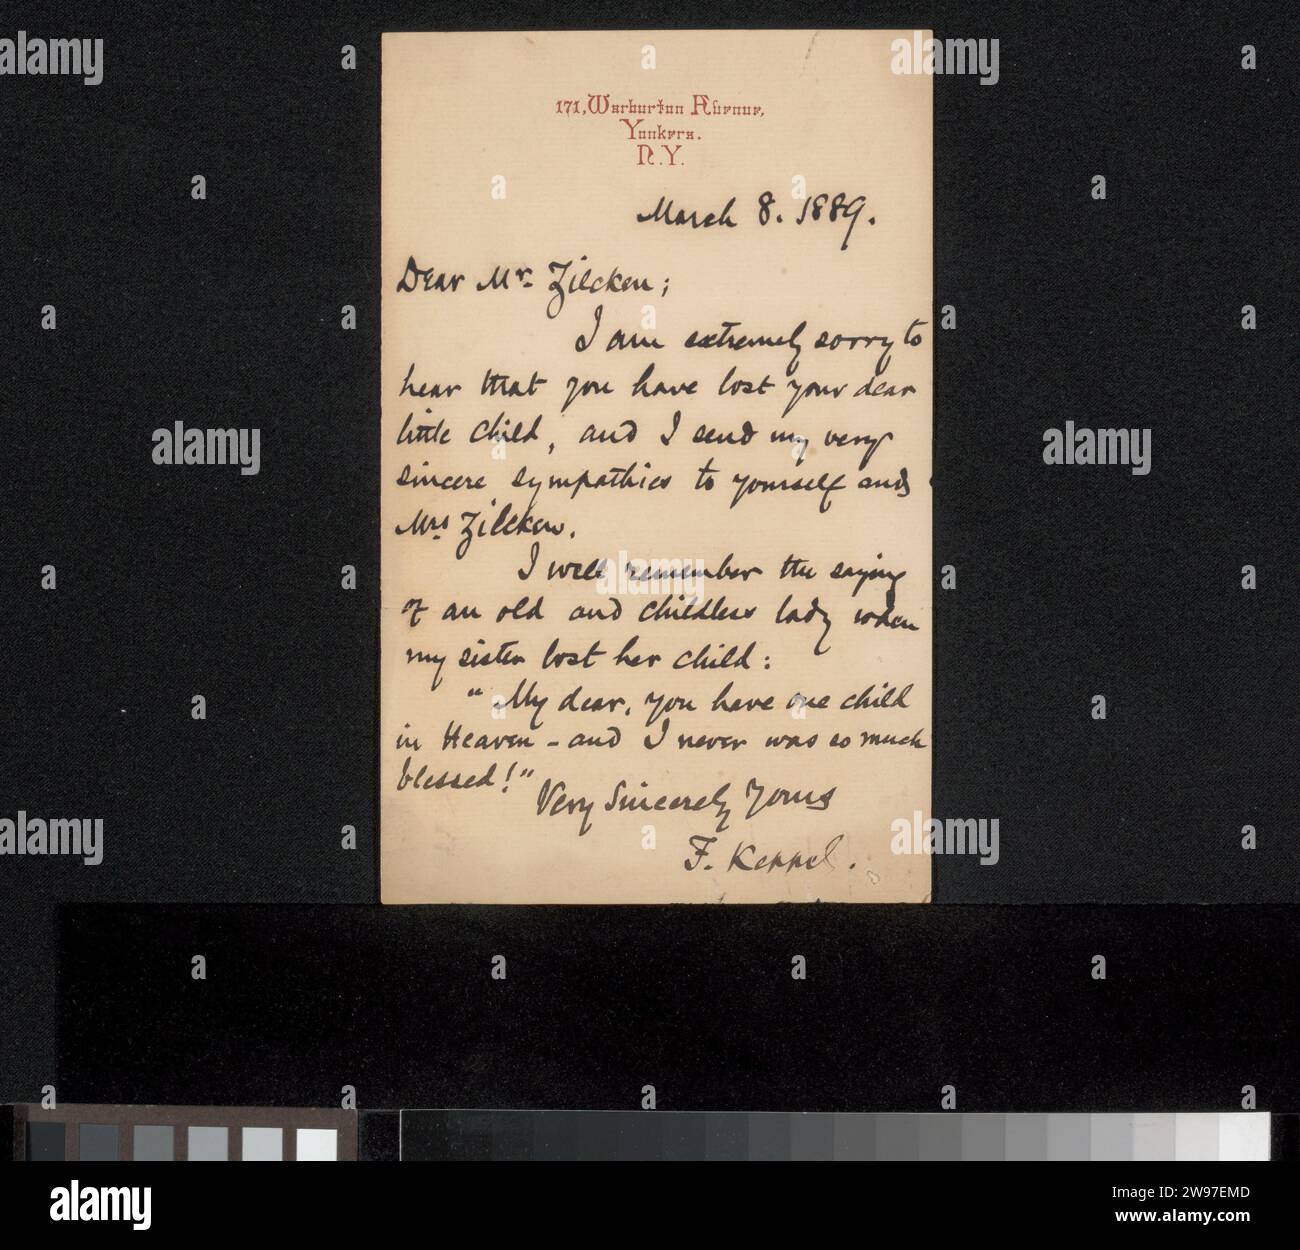 171, Warburton Avenue,
Yonkers.
N.Y.
March 8. 1889.
Dear Mr. Zilcken;
I am extremely sorry to
hear that you have lost your dear
little child, and I send my very
sincere sympathies to yourself and
Mrs Zilcken.
I well remember the saying
of an old and childless lady when
my sister lost her child:
"My dear, you have one child
in Heaven - and I never was so much
blessed!"
Very Sincerely Yours
F. Keppel.
alamy
Image ID: 2W97EMD
www.alamy.com